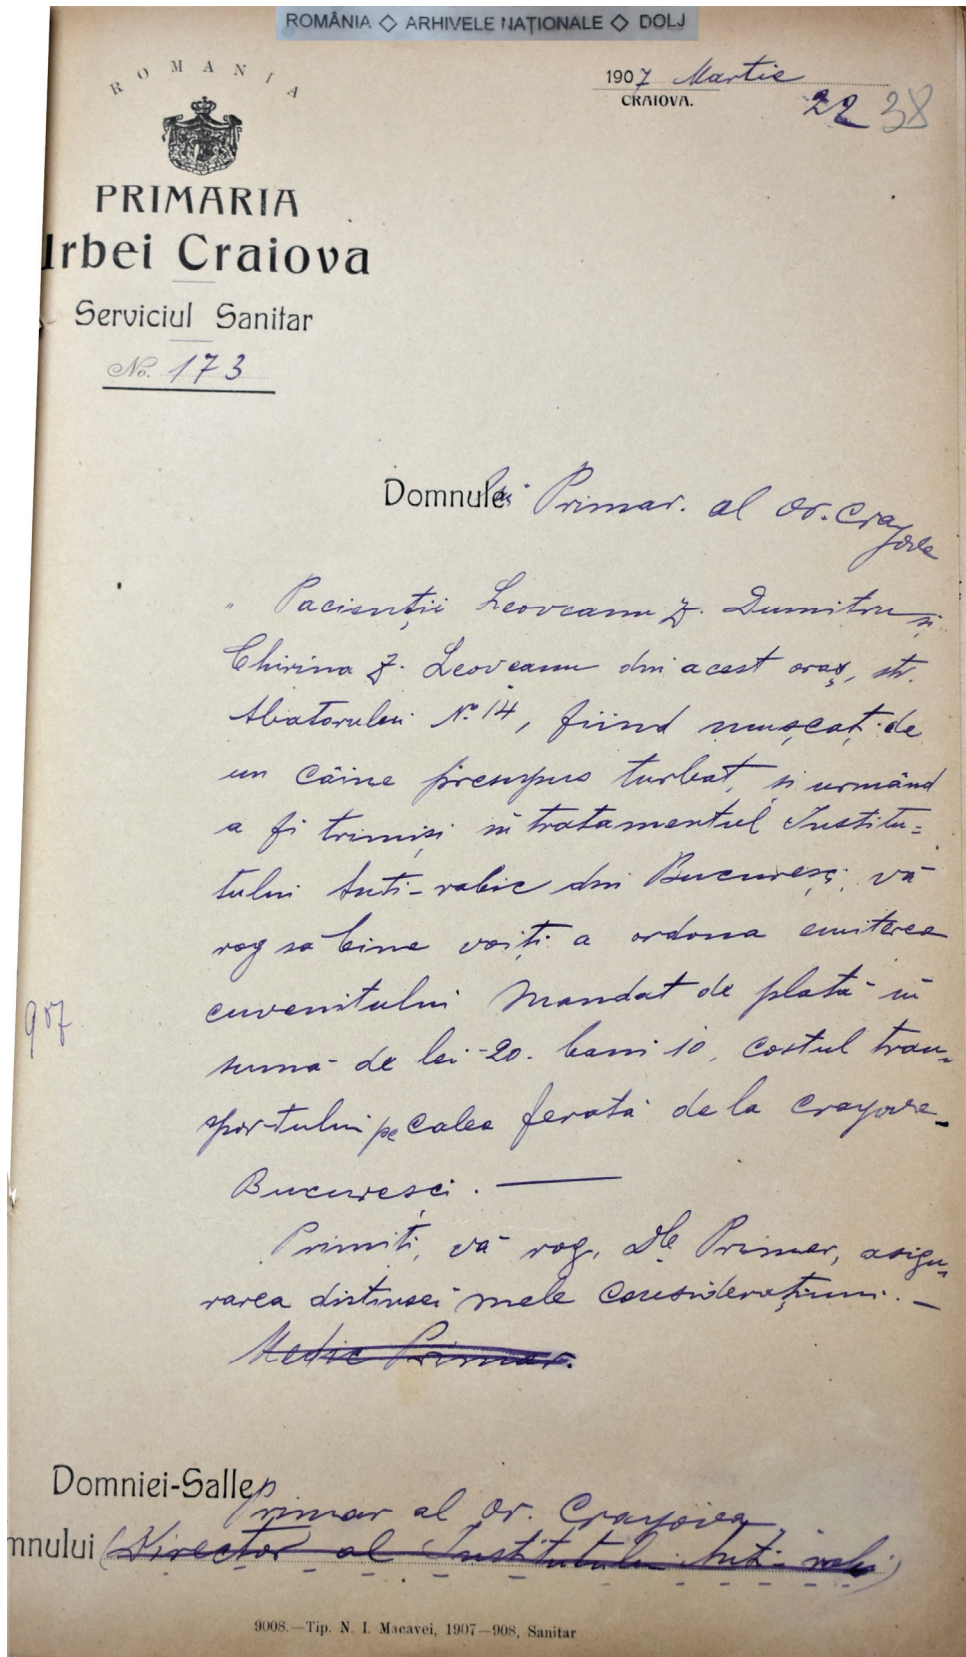 ROMÂNIA ◇ ARHIVELE NAȚIONALE ◇ DOLJ
ROMANIA
1907 Martie
CRAIOVA.
22 38
PRIMARIA
Urbei Craiova
Serviciul Sanitar
No. 173
Domnului Primar. al Or. Crayova
Pacienții Leoveanu Z. Dumitru și
Chirina Z. Leoveanu din acest oraș, str.
Abatorului No 14, fiind mușcați de
un câine presupus turbat, și urmând
a fi trimiși in tratamentul Institu=
tului Anti-rabic din Bucuresci, vă
rog să bine voiți a ordona emiterea
cuvenitului Mandat de plată in
sumă de lei 20. bani 10, costul tran=
sportului pe calea ferată de la Crayova-
Bucuresci. —
907
Primiti, vă rog, Dle Primar, asigu=
rarea distinsei mele considerațiuni. —
Medic Primar.
Domniei-Salle Primar al Or. Crayovea
mnului (Director al Institutului Anti-rabic)
9008.—Tip. N. I. Macavei, 1907—908, Sanitar